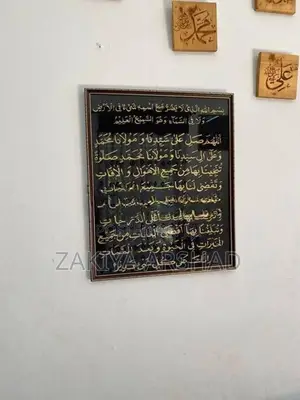 محمد
علي
بسم الله الذي لا يضر مع اسمه شيء في الارض
ولا في السماء وهو السميع العليم
اللهم صل على سيدنا و مولانا محمد
وعلى ال سيدنا و مولانا محمد صلوة
تنجينا بها من جميع الاهوال و الافات
وتقضى لنا بها جميع الحاجات
الدرجات
وتبلغنا بها اقصى الغايات من جميع
الخيرات في الحيوة وبعد الممات
ZAKIYA ARSHAD